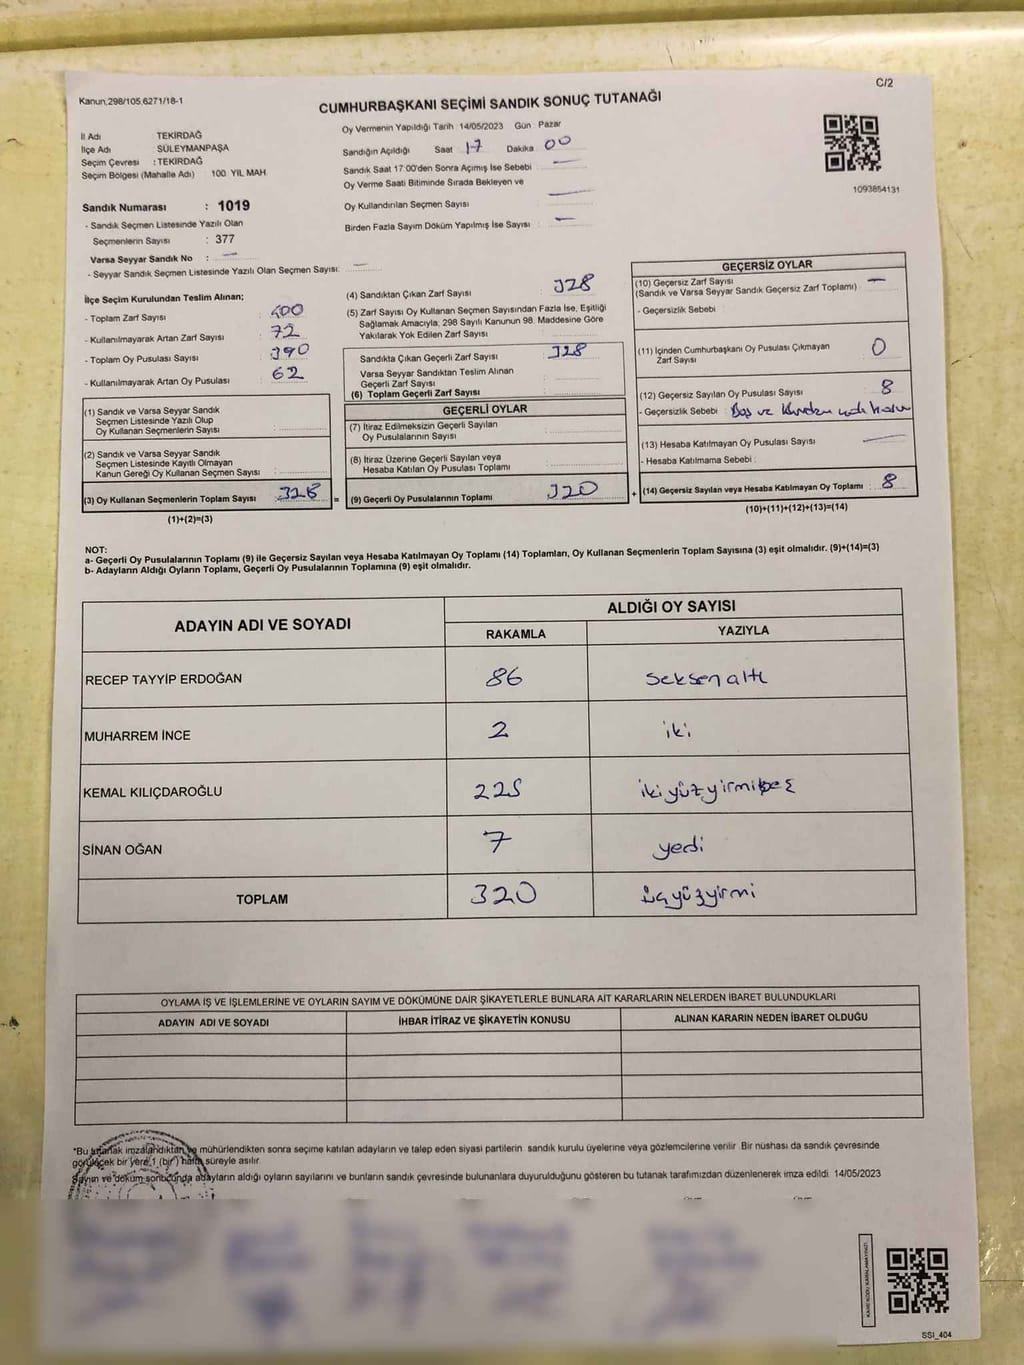 C/2
Kanun,298/105,6271/18-1
CUMHURBAŞKANI SEÇİMİ SANDIK SONUÇ TUTANAĞI
İl Adı TEKİRDAĞ
İlçe Adı SÜLEYMANPAŞA
Seçim Çevresi : TEKİRDAĞ
Seçim Bölgesi (Mahalle Adı) 100. YIL MAH.
Sandık Numarası : 1019
- Sandık Seçmen Listesinde Yazılı Olan
Seçmenlerin Sayısı : 377
Varsa Seyyar Sandık No : —
- Seyyar Sandık Seçmen Listesinde Yazılı Olan Seçmen Sayısı: —
Oy Vermenin Yapıldığı Tarih 14/05/2023 Gün Pazar
Sandığın Açıldığı Saat 17 Dakika 00
Sandık Saat 17:00'den Sonra Açımış İse Sebebi —
Oy Verme Saati Bitiminde Sırada Bekleyen ve
Oy Kullandırılan Seçmen Sayısı —
Birden Fazla Sayım Döküm Yapılmış İse Sayısı —
1093854131
İlçe Seçim Kurulundan Teslim Alınan;
- Toplam Zarf Sayısı : 400
- Kullanılmayarak Artan Zarf Sayısı : 72
- Toplam Oy Pusulası Sayısı : 390
- Kullanılmayarak Artan Oy Pusulası : 62
(1) Sandık ve Varsa Seyyar Sandık
Seçmen Listesinde Yazılı Olup
Oy Kullanan Seçmenlerin Sayısı
(2) Sandık ve Varsa Seyyar Sandık
Seçmen Listesinde Kayıtlı Olmayan
Kanun Gereği Oy Kullanan Seçmen Sayısı
(3) Oy Kullanan Seçmenlerin Toplam Sayısı 328 =
(1)+(2)=(3)
(4) Sandıktan Çıkan Zarf Sayısı : 328
(5) Zarf Sayısı Oy Kullanan Seçmen Sayısından Fazla İse, Eşitliği
Sağlamak Amacıyla, 298 Sayılı Kanunun 98. Maddesine Göre
Yakılarak Yok Edilen Zarf Sayısı
Sandıkta Çıkan Geçerli Zarf Sayısı : 328
Varsa Seyyar Sandıktan Teslim Alınan
Geçerli Zarf Sayısı
(6) Toplam Geçerli Zarf Sayısı
GEÇERLİ OYLAR
(7) İtiraz Edilmeksizin Geçerli Sayılan
Oy Pusulalarının Sayısı
(8) İtiraz Üzerine Geçerli Sayılan veya
Hesaba Katılan Oy Pusulası Toplamı
(9) Geçerli Oy Pusulalarının Toplamı 320 +
GEÇERSİZ OYLAR
(10) Geçersiz Zarf Sayısı —
(Sandık ve Varsa Seyyar Sandık Geçersiz Zarf Toplamı)
- Geçersizlik Sebebi :
(11) İçinden Cumhurbaşkanı Oy Pusulası Çıkmayan
Zarf Sayısı 0
(12) Geçersiz Sayılan Oy Pusulası Sayısı : 8
- Geçersizlik Sebebi : Boş ve
(13) Hesaba Katılmayan Oy Pusulası Sayısı —
- Hesaba Katılmama Sebebi :
(14) Geçersiz Sayılan veya Hesaba Katılmayan Oy Toplamı : 8
(10)+(11)+(12)+(13)=(14)
NOT:
a- Geçerli Oy Pusulalarının Toplamı (9) ile Geçersiz Sayılan veya Hesaba Katılmayan Oy Toplamı (14) Toplamları, Oy Kullanan Seçmenlerin Toplam Sayısına (3) eşit olmalıdır. (9)+(14)=(3)
b- Adayların Aldığı Oyların Toplamı, Geçerli Oy Pusulalarının Toplamına (9) eşit olmalıdır.
ADAYIN ADI VE SOYADI
ALDIĞI OY SAYISI
RAKAMLA YAZIYLA
RECEP TAYYİP ERDOĞAN 86 Seksen altı
MUHARREM İNCE 2 iki
KEMAL KILIÇDAROĞLU 225 ikiyüzyirmibeş
SİNAN OĞAN 7 yedi
TOPLAM 320 üçyüzyirmi
OYLAMA İŞ VE İŞLEMLERİNE VE OYLARIN SAYIM VE DÖKÜMÜNE DAİR ŞİKAYETLERLE BUNLARA AİT KARARLARIN NELERDEN İBARET BULUNDUKLARI
ADAYIN ADI VE SOYADI İHBAR İTİRAZ VE ŞİKAYETİN KONUSU ALINAN KARARIN NEDEN İBARET OLDUĞU
*Bu tutanak imzalandıktan ve mühürlendikten sonra seçime katılan adayların ve talep eden siyasi partilerin sandık kurulu üyelerine veya gözlemcilerine verilir. Bir nüshası da sandık çevresinde
görülecek bir yere 1 (bir) hafta süreyle asılır.
Sayım ve döküm sonucunda adayların aldığı oyların sayılarını ve bunların sandık çevresinde bulunanlara duyurulduğunu gösteren bu tutanak tarafımızdan düzenlenerek imza edildi. 14/05/2023
KAREKODU KARALAMAYINIZ!
SSI_404